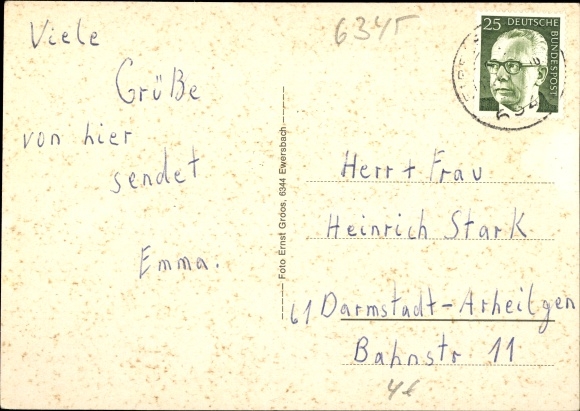 Viele
Grüße
von hier
sendet
Emma.
6345
25 DEUTSCHE
BUNDESPOST
Foto Ernst Groos, 6344 Ewersbach
Herr + Frau
Heinrich Stark
61 Darmstadt-Arheilgen
Bahnstr 11